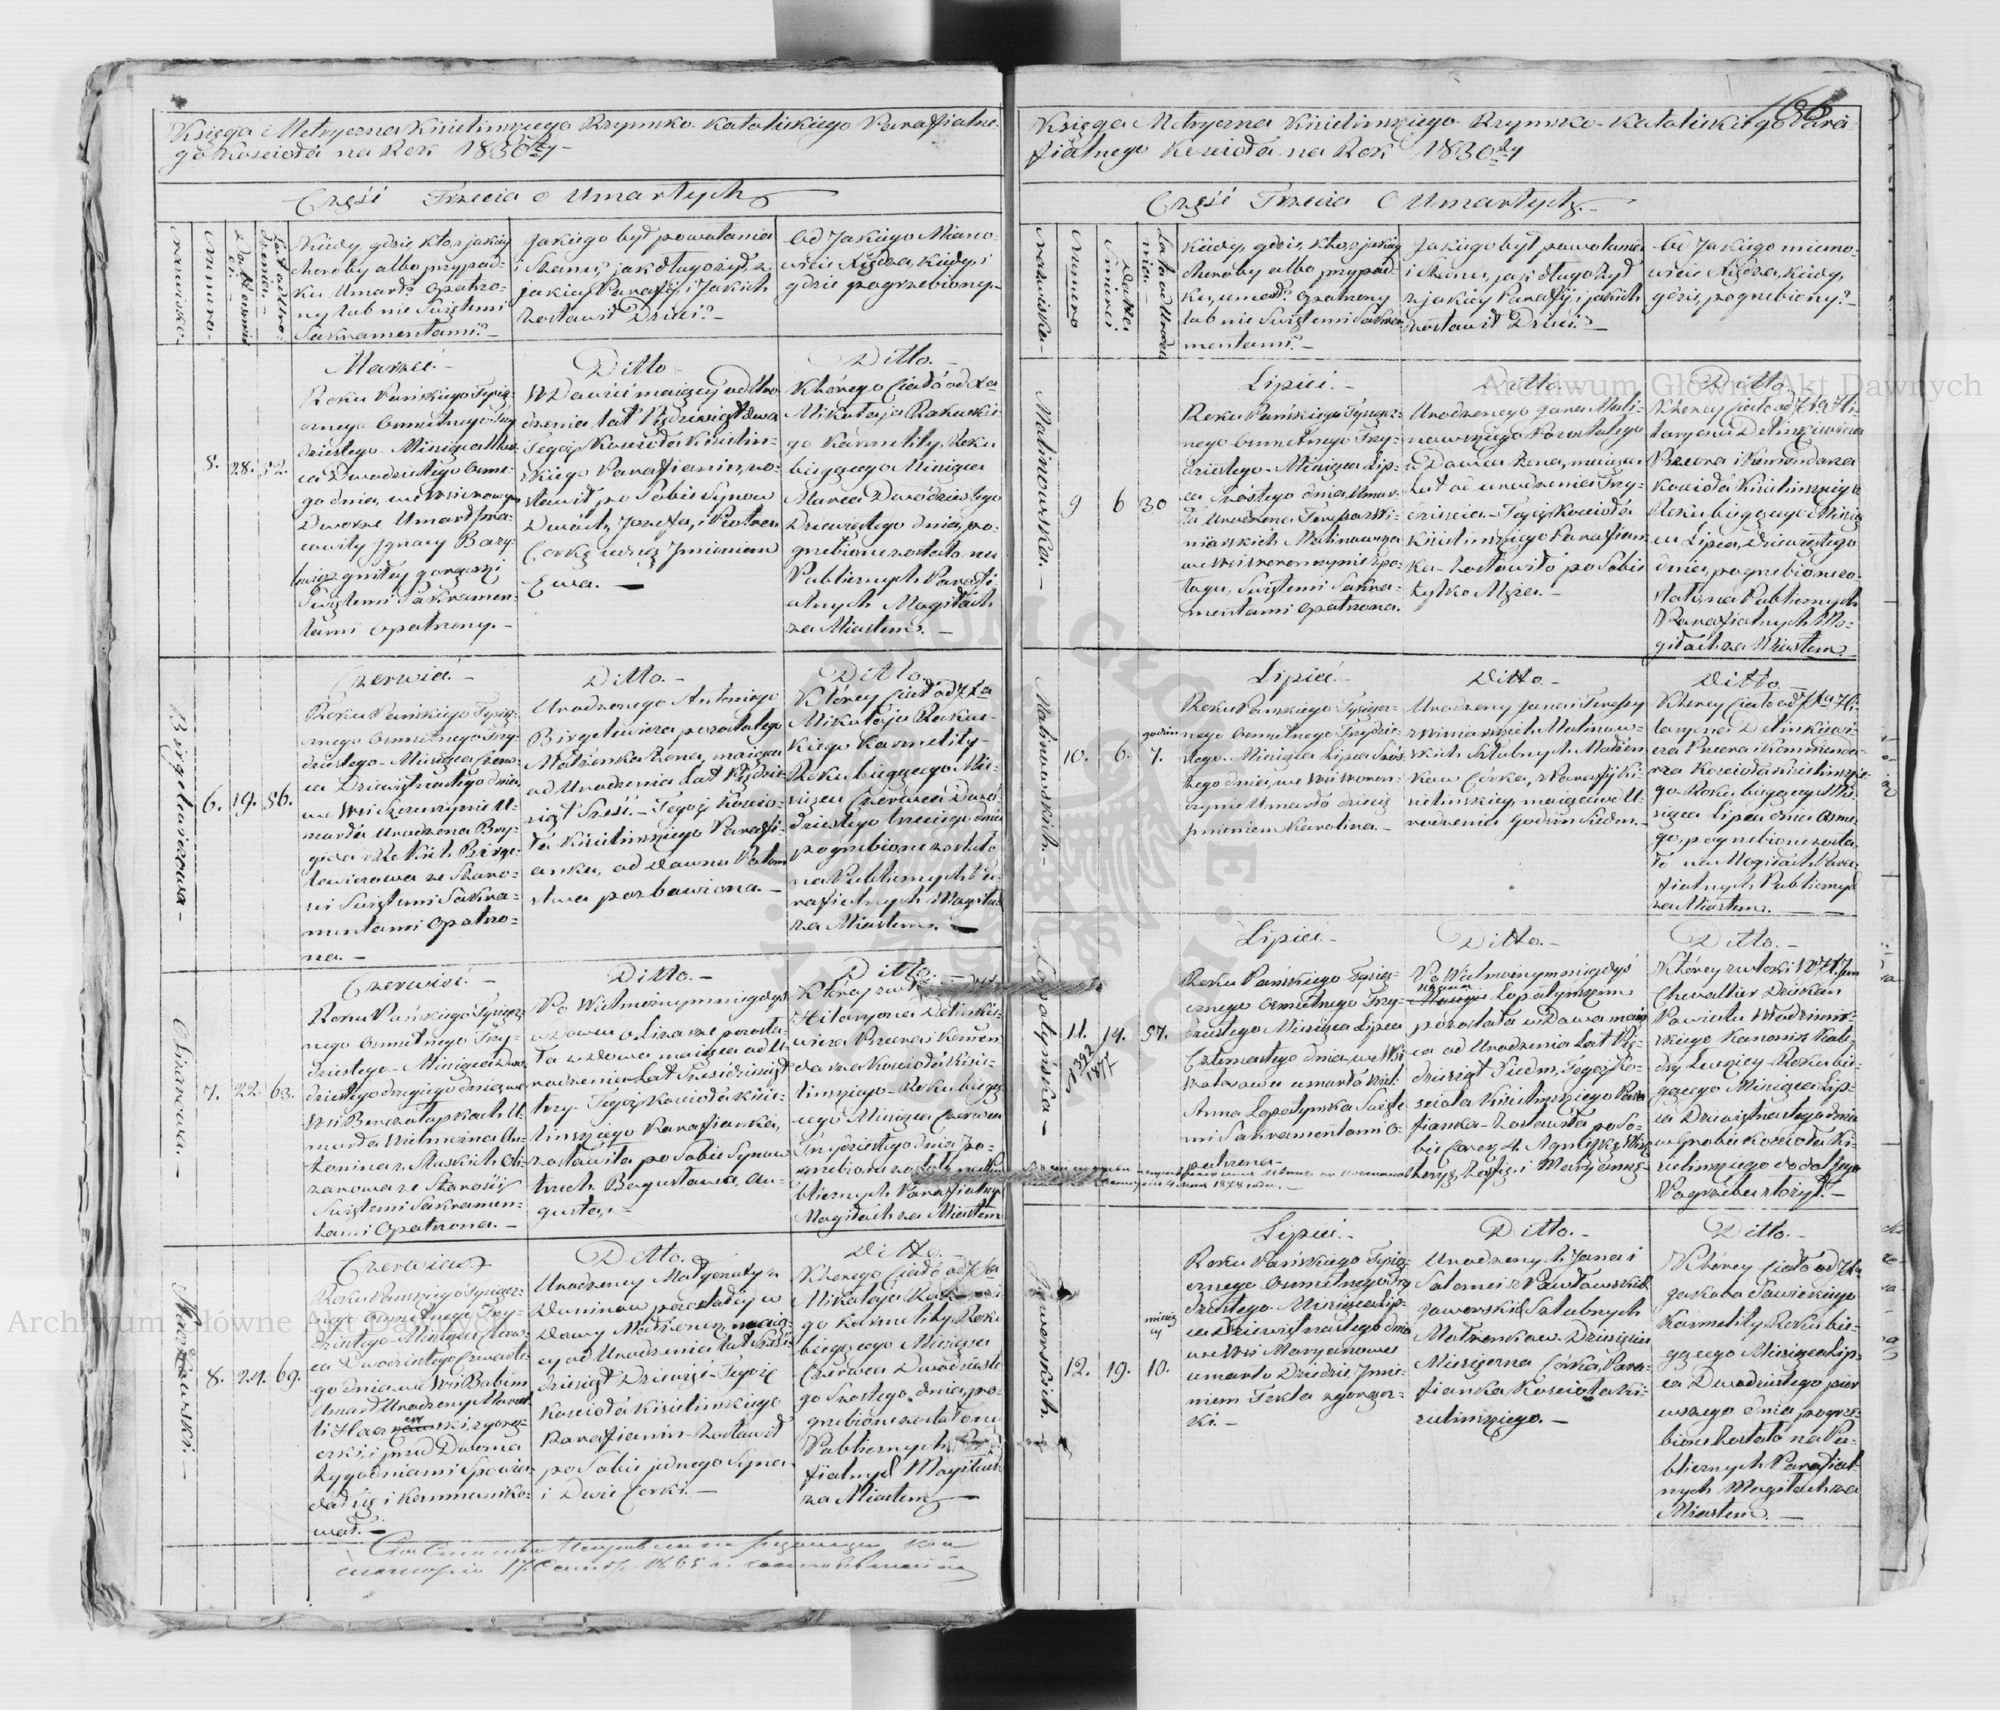 Księga Metryczna Kisielinskiego Rzymsko Katolickiego Parafialne-
go Kościoła na Rok 1830ty
Część Trzecia o Umarłych
Nazwisko.
Numero.
Lat od Uro-
dzenia.
Kiedy, gdzie, kto, z jakiey
choroby albo przypad-
ku Umarł? Opatrzo-
ny lub nie Świętemi
Sakramentami?
Jakiego był powołania
i Stanu, jak długo żył, z
jakiey Parafij, i Jakich
zostawił Dzieci?
Od Jakiego Miano-
wicie Xiędza, kiedy, i
gdzie pogrzebiony.
Marzec.
Roku Pańskiego Tysiąc-
cznego Ośmsetnego Trzy
dziestego Miesiąca Mar-
ca Dwudziestego Osme-
go dnia, we Wsi
Dworze Umarł Pra-
cowity Ignacy Bazy-
zgniłey gorączki
Świętemi Sakramen-
tami opatrzony.
5. 28. 52.
Ditto
Wdowiec maiący od Uro-
dzenia lat Pięćdziesiąt dwa
Tegoż Kościoła Kisielin-
skiego Parafianin, zo-
stawił po Sobie Synow
Dwóch, Jozefa, i Piotra
Corkę Imieniem
Ewa.
Ditto.
Którego Ciało od Xa
Mikołaja Rakuskie-
go Karmelity, Roku
bieżącego Miesiąca
Marca Dwódziestego
Dziewiątego dnia, po-
grzebione zostało na
Publicznych Parafi-
alnych Mogiłach
za Miastem.
Birgelewiczowa
6. 19. 56.
Czerwiec.
Roku Pańskiego Tysią-
cznego Ośmsetnego Trzy-
dziestego Miesiąca Czerw-
ca Dziewiętnastego dnia,
we Wsi U-
marła Urodzona Bry-
gida Birge-
lewiczowa ze Staro-
ści Świętemi Sakra-
mentami Opatrzo-
na.
Ditto.
Urodzonego Antoniego
Birgelewicza pozostałego
Małżonka Żona, maiąca
od Urodzenia Lat Pięćdzie-
siąt Sześć. Tegoż Kościo-
ła Kisielinskiego Parafi-
anka, od dawna Potom
stwa pozbawiona.
Ditto.
Którey Ciało od Xa
Mikołaja Rakus-
kiego Karmelity
Roku bieżącego Mie-
siąca Czerwca Dwó-
dziestego trzeciego dnia
pogrzebione zostało
na Publicznych Pa-
rafialnych Mogiłach
za Miastem.
Olizarowa.
7. 22. 63.
Czerwiec.
Roku Pańskiego Tysiącz-
nego Ośmsetnego Trzy-
dziestego Miesiąca Dwu-
dziestego drugiego dnia, we
Wsi U-
marła Wielmożna An-
tonina z Oli-
zarowa ze Starości
Świętemi Sakramen-
tami Opatrzona.
Ditto.
Po Wielmożnym niegdyś
Olizarze pozosta-
ła wdowa maiąca od U-
rodzenia Lat Sześćdziesiąt
trzy. Tegoż Kościoła Kisie-
linskiego Parafianka,
zostawiła po Sobie Synow
trzech Bogusława, Au-
gusta,
Ditto.
Hilaryona Delinkie-
wicza Proboszcza i Kommen-
darza Kościoła Kisie-
linskiego Roku bieżą-
cego Miesiąca Czerwca
Trzydziestego dnia po-
grzebione zostało na Pu-
blicznych Parafialnych
Mogiłach za Miastem
8. 24. 69.
Czerwiec
Roku Pańskiego Tysiącz-
nego Ośmsetnego Trzy-
dziestego Miesiąca Czerw-
ca Dwódziestego Czwarte-
go dnia we Wsi Babim
Umarł Urodzony
z gorą-
czki, i przed Dwoma
tygodniami Spowia-
dał się i Kommuniko-
wał.
Ditto.
Urodzoney Małgorzaty z
Duninow pozostałey w
Dowy Małżonek, maią-
cy od Urodzenia lat Sześć-
dziesiąt Dziewięć Tegoż
Kościoła Kisielinskiego
Parafianin Zostawił
po Sobie jednego Syna
i Dwie Corki.
Ditto.
Którego Ciało od Xa
Mikołaja
go Karmelity Roku
bieżącego Miesiąca
Czerwca Dwódzieste
go Szóstego dnia, po-
grzebione zostało na
Publicznych Para-
fialnych Mogiłach
za Miastem
186
Księga Metryczna Kisielinskiego Rzymsko-Katolickiego Para
fialnego Kościoła na Rok 1830ty
Część Trzecia O Umarłych.
Nazwisko.
Numero
Datta
Smierci
Lata od Urodze
nia.
Kiedy, gdzie, kto, z jakiey
choroby albo przypad-
ku, umarł? Opatrzony
lub nie Świętemi Sakra-
mentami?
Jakiego był powołania
i Stanu, jak długo żył
z jakiey Parafij, i jakich
zostawił Dzieci?
Od Jakiego miano-
wicie Xiędza, kiedy,
gdzie, pogrzebiony?
Malinowska.
9 6 30
Lipiec.
Roku Pańskiego Tysiącz-
nego Ośmsetnego Trzy-
dziestego Miesiąca Lip-
ca Szóstego dnia, Umar-
ła Urodzona Teressa z Wi-
niarskich Malinowska
we Wsi Woronczynie z po-
łogu, Świętemi Sakra-
mentami Opatrzona.
Ditto.
Urodzonego Jana Mali-
nowskiego Pozostałego
Wdowca Żona, maiąca
Lat od urodzenia Trzy-
dzieścia. Tegoż Kościoła
Kisielinskiego Parafian-
ka Zostawiła po Sobie
tylko Męża.
Ditto
Którey Ciało od Xa Hi-
laryona Delinkiewicza
Proboszcza i Kommendarza
Kościoła Kisielinskiego
Roku bieżącego Miesią-
ca Lipca, Dziewiątego
dnia, pogrzebione zo-
stało, na Publicznych
Parafialnych Mo-
giłach za Miastem.
Malinowskich.
10. 6. godzin 7.
Lipiec.
Roku Pańskiego Tysiącz-
nego Ośmsetnego Trzydzie-
stego Miesiąca Lipca Szós-
tego dnia, we Wsi Woron-
czynie Umarło dziecię
Imieniem Karolina.
Ditto.
Urodzonych Jana i Teressy
z Winiarskich Malinow-
skich Szlubnych Małżon-
kow Córka, z Parafij Ki-
sielinskiey, maiąca od U-
rodzenia godzin Siedm.
Ditto.
Którey Ciało od Xa Hi-
laryona Delinkiewi-
cza Proboszcza i Kommenda-
rza Kościoła Kisielinskie-
go Roku bieżącego Mie-
siąca Lipca dnia Osme-
go, pogrzebione zosta-
ło na Mogiłach Para-
fialnych Publicznych
za Miastem.
Łopatyńska
11. 14. 57.
Lipiec.
Roku Pańskiego Tysią-
cznego Ośmsetnego Trzy-
dziestego Miesiąca Lipca
Czternastego dnia we Wsi
umarła Wiel.
Anna Łopatynska Święte-
mi Sakramentami o-
patrzona.
Ditto.
Po Wielmożnym niegdyś
Łopatyńskim
pozostała wdowa maią-
ca od Urodzenia Lat Pię-
dziesiąt Siedm, Tegoż Ko-
ścioła Kisielinskiego Para
fianka Zostawiła po So-
bie Corek 4. Agnieszkę,
Zofię, i Maryannę
Ditto.
Którey zwłoki
Chevallier Dziekan
Powiatu Włodzimir-
skiego Kanonik Kate-
dry Łuckiey Roku bie-
żącego Miesiąca Lip-
ca Dziewiętnastego dnia
w grobie Kościoła Ki-
sielinskiego do dalszego
Pogrzebu złożył.
Jaworskich.
12. 19. miesięcy 10.
Lipiec.
Roku Pańskiego Tysią-
cznego Ośmsetnego Trzy-
dziestego Miesiąca Lip-
ca Dziewiętnastego dnia
we Wsi Maryanowce
umarło Dziecię Imie-
niem Tekla z gorącz-
ki.
Ditto.
Urodzonych Jana i
Salomei z Pawłowskich
Jaworskich Szlubnych
Małżonkow Dziesięcio
Miesięczna Córka, Para-
fianka Kościoła Ki-
sielinskiego.
Ditto.
Którey Ciało od Xa
Jakoba Sawickiego
Karmelity Roku bie-
żącego Miesiąca Lip-
ca Dwudziestego pier
wszego dnia, pogrze-
bione Zostało na Pu-
blicznych Parafial-
nych Mogiłach za
Miastem.
Archiwum Główne Akt Dawnych
Archiwum Główne Akt Dawnych